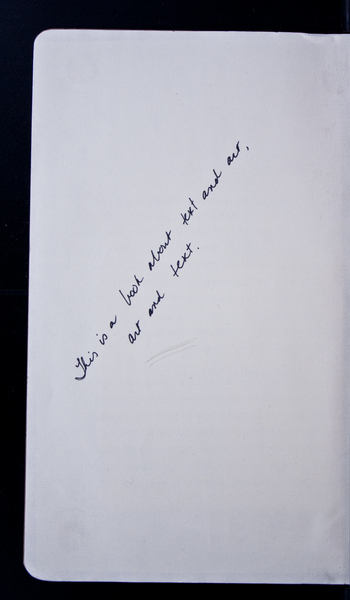 This is a book about text and art,
art and text.